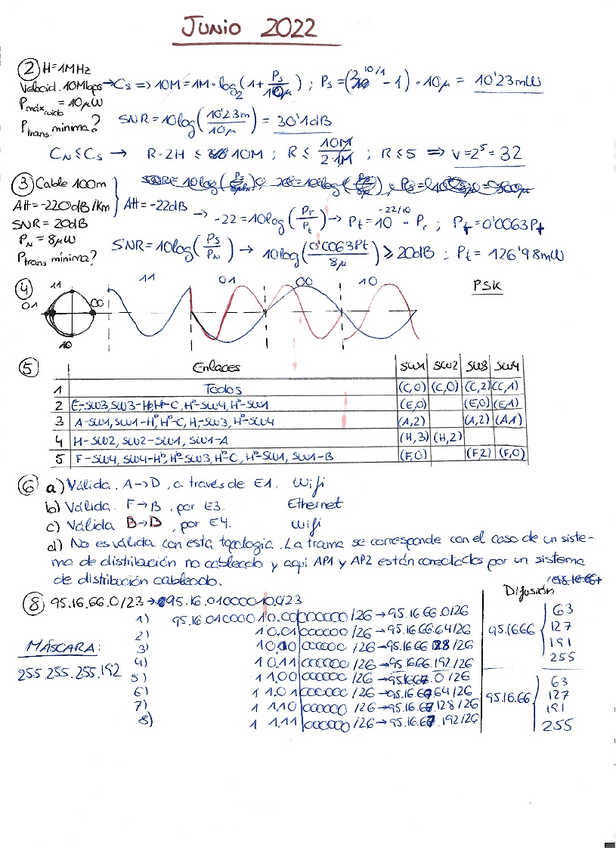 JUNIO 2022
② H=1MHz
Velocid. 10Mbps → Cs => 10M = 1M·log₂(1 + Ps/10μ) ; Ps = (2^10/1 - 1)·10μ = 10'23mW
Pmáx ruido = 10μW
Ptrans mínima? SNR = 10log(10'23m/10μ) = 30'1dB
CN ≤ Cs → R·2H ≤ 10M ; R ≤ 10M/2·1M ; R ≤ 5 => V = 2⁵ = 32
③ Cable 100m
Att = -220dB/Km } Att = -22dB → -22 = 10log(Pr/Pt) → Pt = 10^-22/10 · Pr ; Pr = 0'0063Pt
SNR = 20dB
PN = 8μW SNR = 10log(Ps/PN) → 10log(0'0063Pt/8μ) ≥ 20dB ; Pt = 126'98mW
Ptrans mínima?
④ PSK
11 11 01 00 10
01 00
10
⑤ Enlaces SW1 SW2 SW3 SW4
1 Todos (C,0) (C,0) (C,2) (C,1)
2 E-SW3, SW3-H, H-C, H-SW4, H-SW1 (E,0) (E,0) (E,1)
3 A-SW1, SW1-H, H-C, H-SW3, H-SW4 (A,2) (A,2) (A,1)
4 H-SW2, SW2-SW1, SW1-A (H,3) (H,2)
5 F-SW4, SW4-H, H-SW3, H-C, H-SW1, SW1-B (F,0) (F,2) (F,0)
⑥ a) Válida. A→D, a través de E1. Wifi
b) Válida. F→B, por E3. Ethernet
c) Válida B→D, por E4. Wifi
d) No es válida con esta topología. La trama se corresponde con el caso de un siste-
ma de distribución no cableado y aquí AP1 y AP2 están conectados por un sistema
de distribución cableado.
⑧ 95.16.66.0/23 → 95.16.01000010.0/23
Difusión
1) 95.16.01000010.00|000000/26 → 95.16.66.0/26
2) 10.01|000000/26 → 95.16.66.64/26
3) 10.10|000000/26 → 95.16.66.128/26
4) 10.11|000000/26 → 95.16.66.192/26
5) 11.00|000000/26 → 95.16.67.0/26
6) 11.01|000000/26 → 95.16.67.64/26
7) 11.10|000000/26 → 95.16.67.128/26
8) 11.11|000000/26 → 95.16.67.192/26
MÁSCARA:
255.255.255.192
95.16.66 { 63
127
191
255
95.16.66 { 63
127
191
255